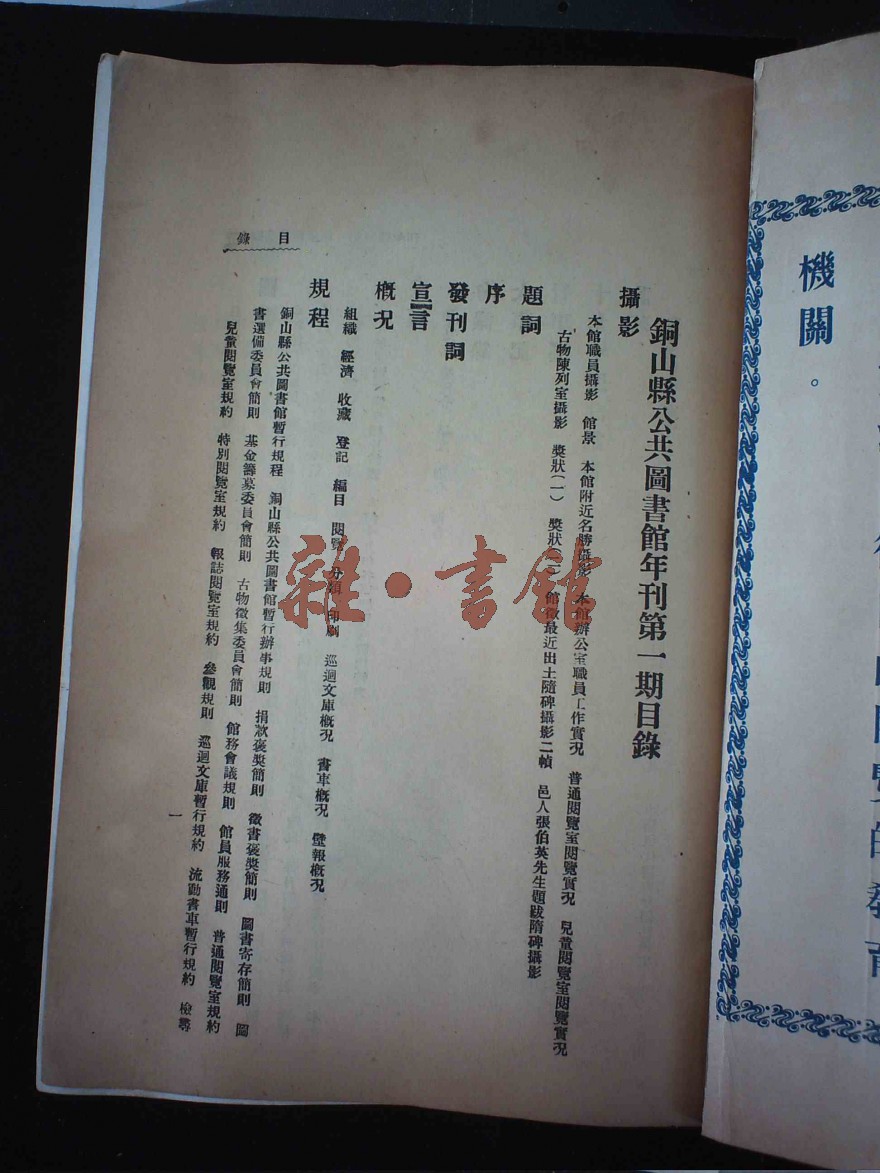 機關。
目錄
銅山縣公共圖書館年刊第一期目錄
攝影
本館職員攝影 館景 本館附近名勝攝影 本館辦公室職員工作實況 普通閱覽室閱覽實況 兒童閱覽室閱覽實況
古物陳列室攝影 獎狀(一) 獎狀(二) 館徵最近出土隨碑攝影二幀 邑人張伯英先生題跋隋碑攝影
題詞
序
發刊詞
宣言
概況
組織 經濟 收藏 登記 編目 閱覽 分類 印刷 巡迴文庫概況 書車概況 壁報概況
規程
銅山縣公共圖書館暫行規程 銅山縣公共圖書館暫行辦事規則 捐款褒獎簡則 徵書褒獎簡則 圖書寄存簡則 圖
書選備委員會簡則 基金籌募委員會簡則 古物徵集委員會簡則 館務會議規則 館員服務通則 普通閱覽室規約
兒童閱覽室規約 特別閱覽室規約 報誌閱覽室規約 參觀規則 巡迴文庫暫行規約 流動書車暫行規約 檢尋
一
雜·書館